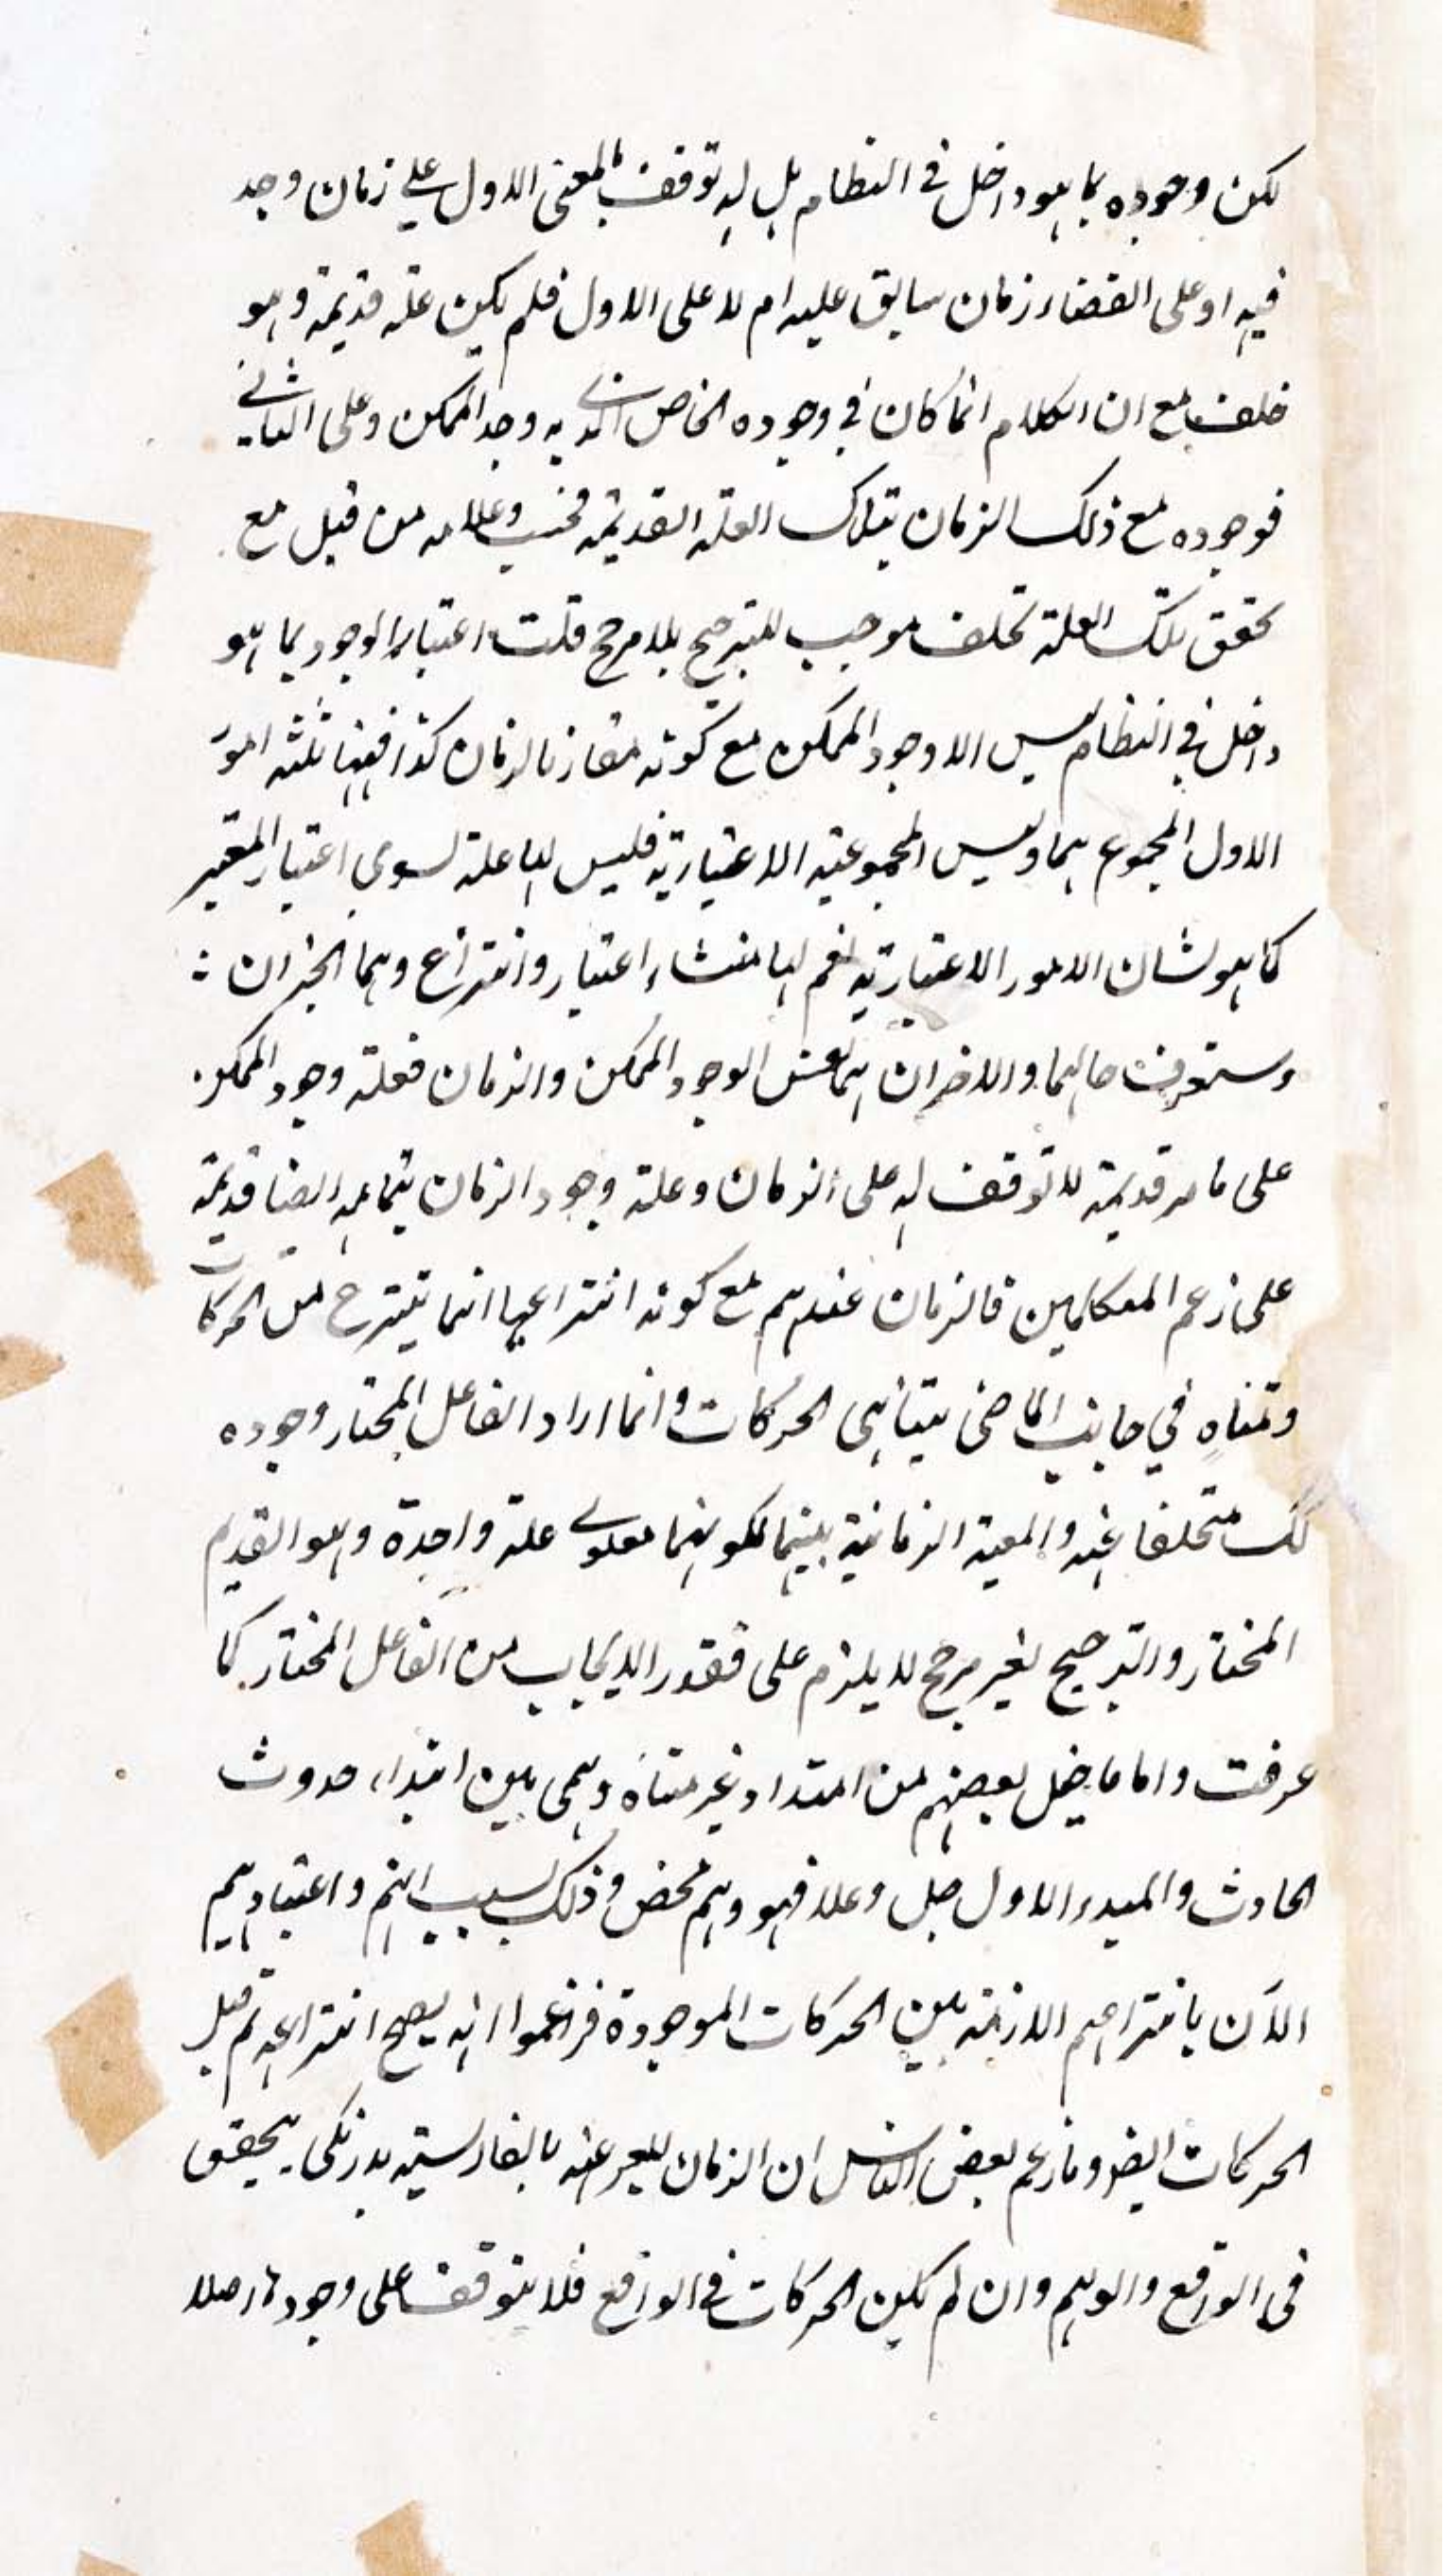 لكن وجوده بما هو داخل في النظام هل له توقف بالمعنى الاول على زمان وجد
فيه او على انقضاء زمان سابق عليه ام لا على الاول فلم يكن علته قديمة وهو
خلف مع ان الكلام انما كان في وجوده الخاص الذي به وجد الممكن وعلى الثاني
فوجوده مع ذلك الزمان بتلك العلة القديمة فحسب وعدمه من قبل مع
تحقق تلك العلة تخلف موجب للترجيح بلا مرجح قلت اعتبار الوجود بما هو
داخل في النظام ليس الا وجود الممكن مع كونه مقارنا لزمان كذا فههنا ثلثة امور
الاول المجموع بما وليس المجموعية الاعتبارية فليس لها علة سوى اعتبار المعتبر
كما هو شان الامور الاعتبارية نعم لها منشاء اعتبار وانتزاع وهما الجزان
وستعرف حالهما والاخران هما نفس الوجود الممكن والزمان فعلة وجود الممكن
على ما مر قديمة لا توقف له على الزمان وعلة وجود الزمان بتمامه ايضا قديمة
على زعم المتكلمين فالزمان عندهم مع كونه انتزاعيا انما ينتزع من الحركات
ومتناه في جانب الماضي بتناهي الحركات وانما اراد الفاعل المختار وجوده
كك متخلفا عنه والمعية الزمانية بينهما لكونهما معلولي علة واحدة وهو القديم
المختار والترجيح بغير مرجح لا يلزم على فقد الايجاب من الفاعل المختار كما
عرفت واما ما خيل بعضهم من امتداد غير متناه وهمي بين ابتداء حدوث
الحادث والمبدء الاول جل وعلا فهو وهم محض وذلك بسبب انهم واعتيادهم
الآن بانتزاعهم الازمنة بين الحركات الموجودة فزعموا انه يصح انتزاعه ثم قبل
الحركات ايضا وما زعم بعض الناس ان الزمان المعبر عنه بالفارسية بدرنكى يتحقق
في الواقع والوهم وان لم يكن الحركات في الواقع فلا يتوقف على وجودها اصلا